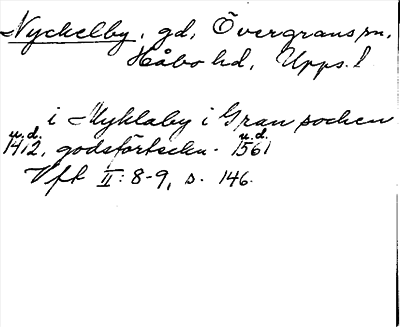 Nyckelby, gd, Övergrans sn,
Håbo hd, Upps. l
i Myklaby i Gran sochen
u.d. u.d.
1412, godsförteckn. 1561
Vft II: 8-9, s. 146.